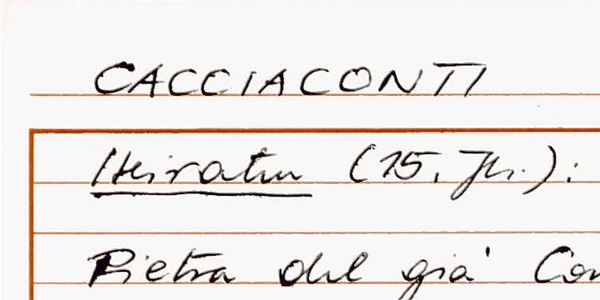 CACCIACONTI
Heiraten (15. Jh.):
Pietra del già Con